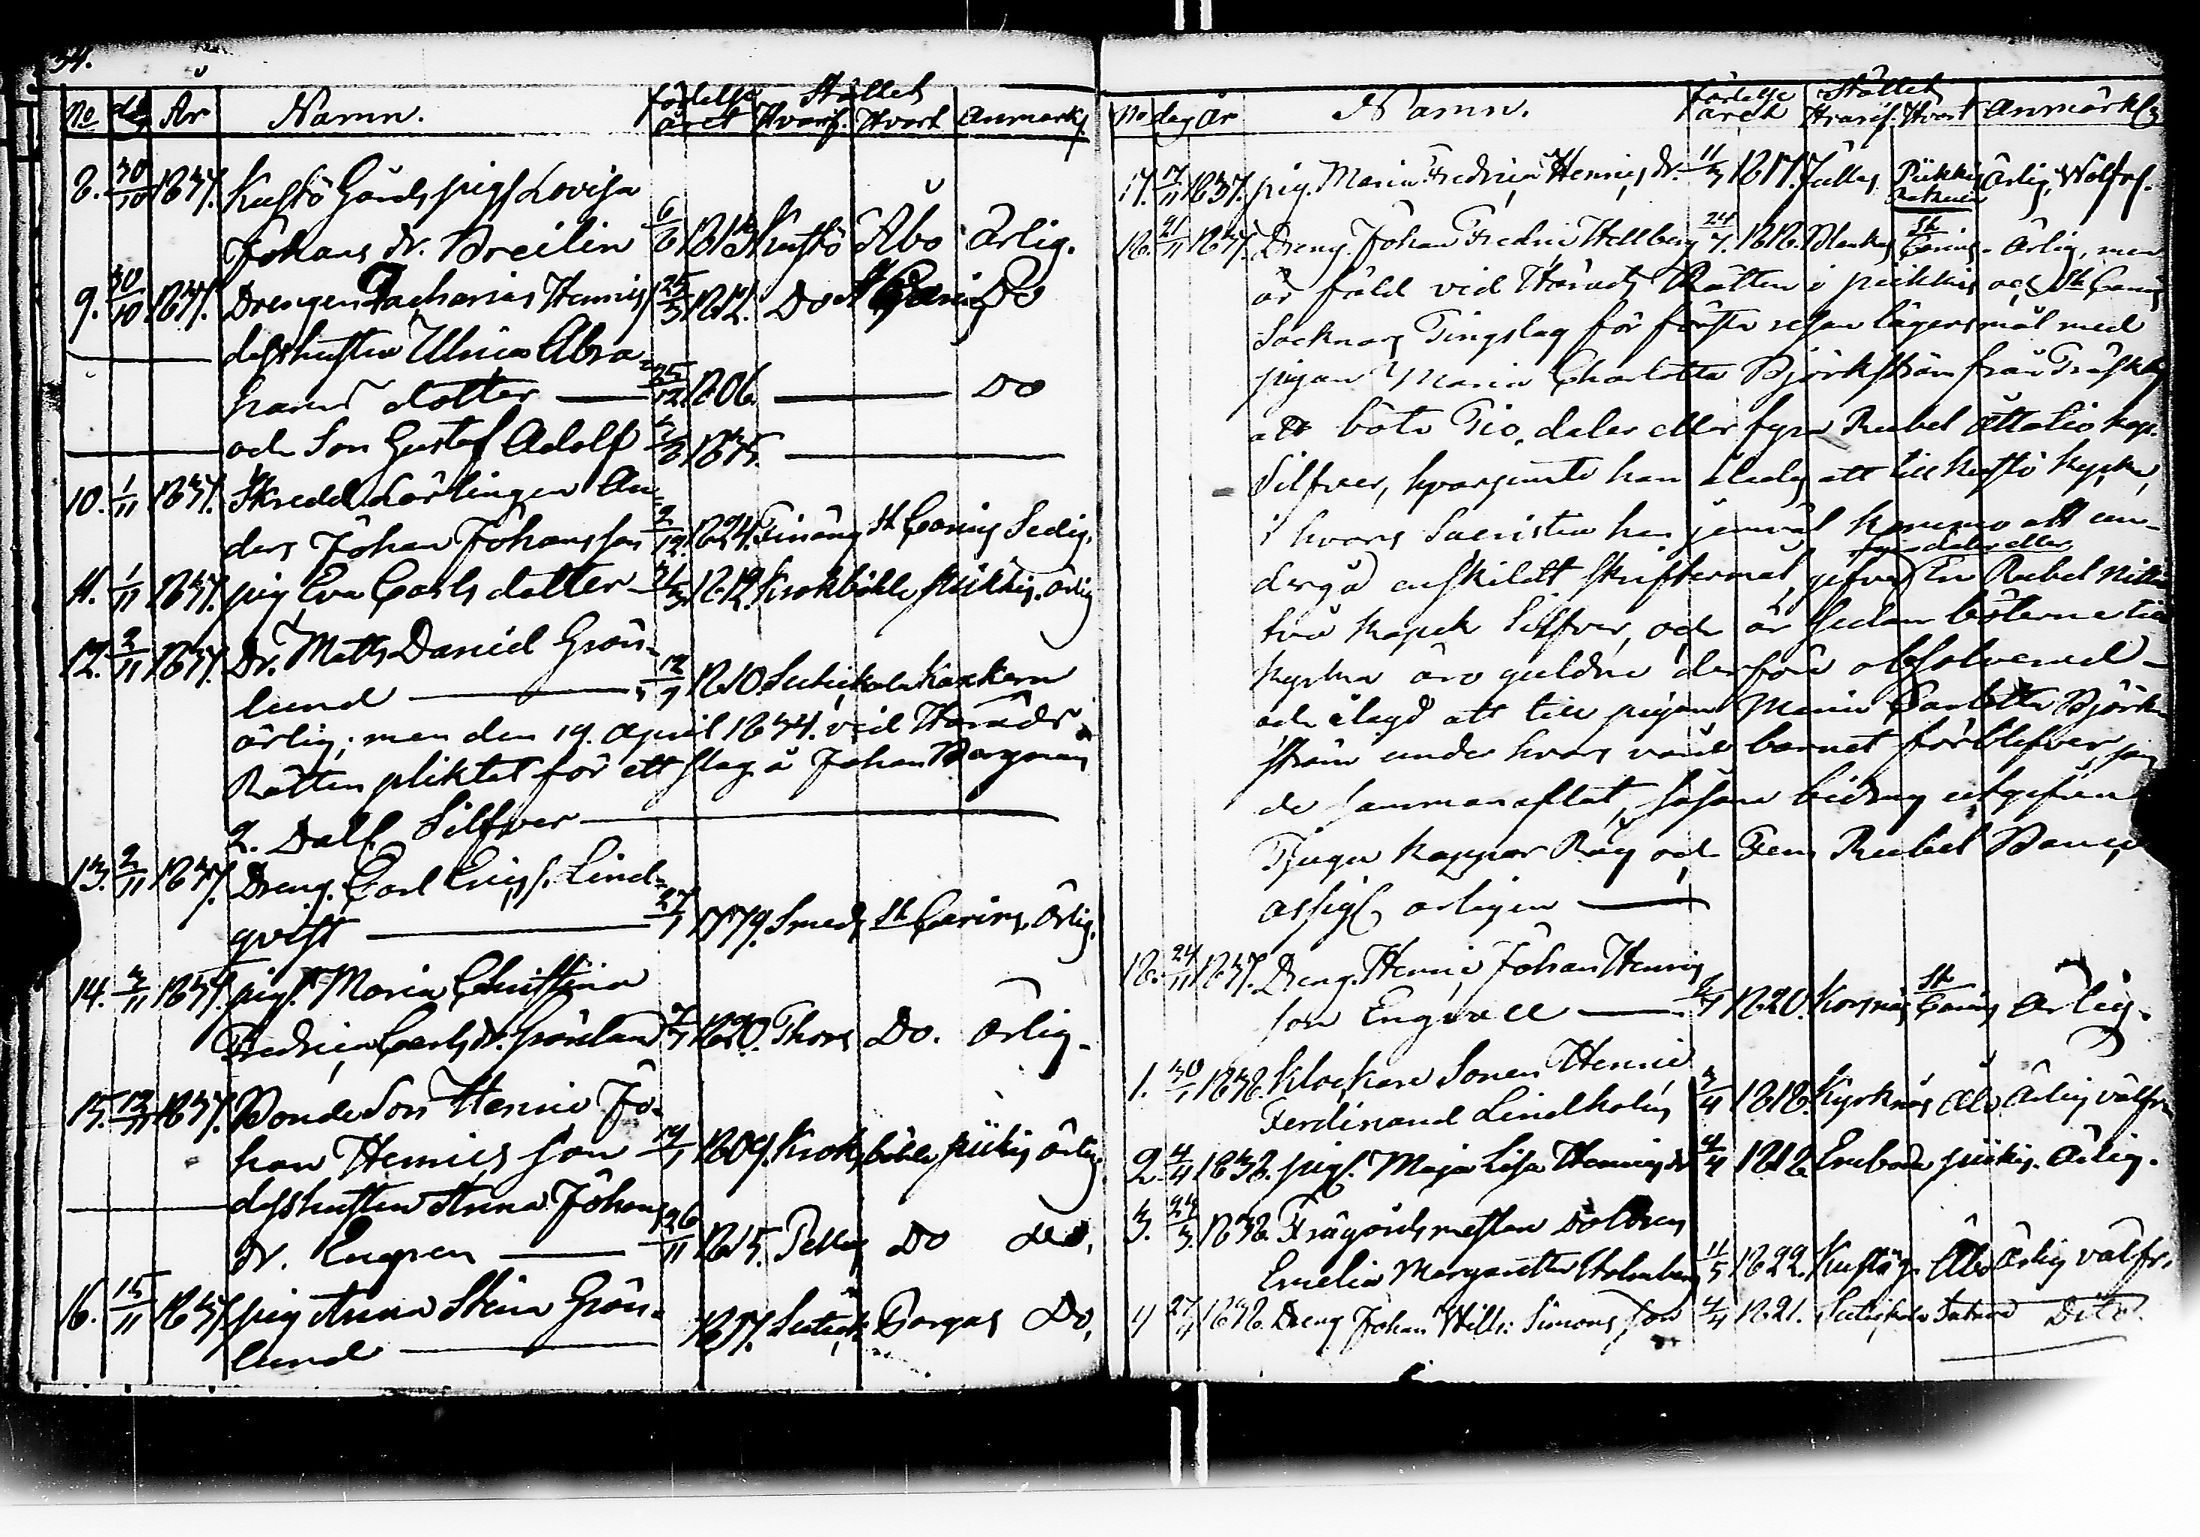 34.
No dag År Namn. födelse året Stället Hvarif. Hvart Anmärkg
8. 30/10 1837. Kustö Gårds pigs. Lovisa
Johans dr. Breilin 6/6 181 Kustö Åbo ärlig.
9. 30/10 1837. Drengen Zacharias Henrics 25/3 1812. Do St Carins Do
dess hustru Ulrica Abra-
hams dotter 25/12 1806. Do
och Son Gustaf Adolf 1835.
10. 1/11 1837. Skredd. Lärlingen An-
ders Johan Johansson 2/12 1824. St Carins Sedig.
11. 1/11 1837. pig. Eva Carls dotter 1812. Krokböhle piikkis. ärlig
12. 2/11 1837. Dr. Matts Daniel Grön-
lund 12/9 1810 Kaskern
ärlig; men den 19. April 1834. vid Härads
Rätten pliktat för ett slag å Johan Bergman
2. Dalr. Silfver
13. 2/11 1837. Dreng. Carl Erics. Lind-
qvist 27/1 1779. Smeds St Carins. Ärlig.
14. 3/11 1837. pigs. Maria Christina
Fredrica Carls dr. 1820. Thors Do. ärlig.
15. 13/11 1837. Bonde Son Henric Jo-
han Henrics son 14/1 1809. Kroksböhle piikis ärlig.
dess hustru Anna Johans
dr. Engren 26/11 1815. Do do.
16. 15/11 1837. pig Anna Stina Grön-
lund 1817. Pargas Do.
No dag år Namn. födelse året Stället Hvarif. Hvart Anmärkg
17. 17/11 1837. pig. Maria Fredrica Henrics dr. 11/3 1817. Jullas Piikkis ärlig, Wälfr.
18. 21/11 1837. Dreng. Johan Fredric Hellberg 24/7. 1818. St Carins. Ärlig, men
är fäld vid Härads Rätten i piikkis och St Carins
Socknars Tingslag för första resan lägersmål med
pigan Maria Charlotta Björkström från
att böta Tio daler eller fyra Rubel Åttatio kop.
Silfver, hvarjemte han ålades att till Kustö kyrka,
i hvars Sacristia han jemväl kommo att un-
dergå enskildt skriftermål, gifva En Rubel Nittio
fyra daler eller
två kopek Silfver, och är sedan böterne till
kyrkan äro guldne derföre absolverad
och ålagd att till pigan Maria Carlotta Björk-
ström under hvars vård barnet förblifver, som
de sammanaflat, såsom bidrag utgifva
Tjugu kappar Råg och Fem Rubel Banco
assign. årligen
18. 24/11 1837. Dreng. Henric Johan Henrics
son Engvall 1820. Korsnäs St Carins ärlig.
1. 30/1 1838. Klockare Sonen Henric
Ferdinand Lindholm 3/4 1818. Kyrknäs Åbo Ärlig välfr.
2. 4/4 1838. pigs. Maja Lisa Henrics dr 4/4 1818. piikis. Ärlig.
3. 24/3. 1838. Trägårdsmestar dottren
Emelia Margaretha Holmberg 11/5 1822. Kustög. Åbo Ärlig välfr.
4 27/4 1838. Dreng Johan Wilh. Simons son 4/4 1821. Dito.